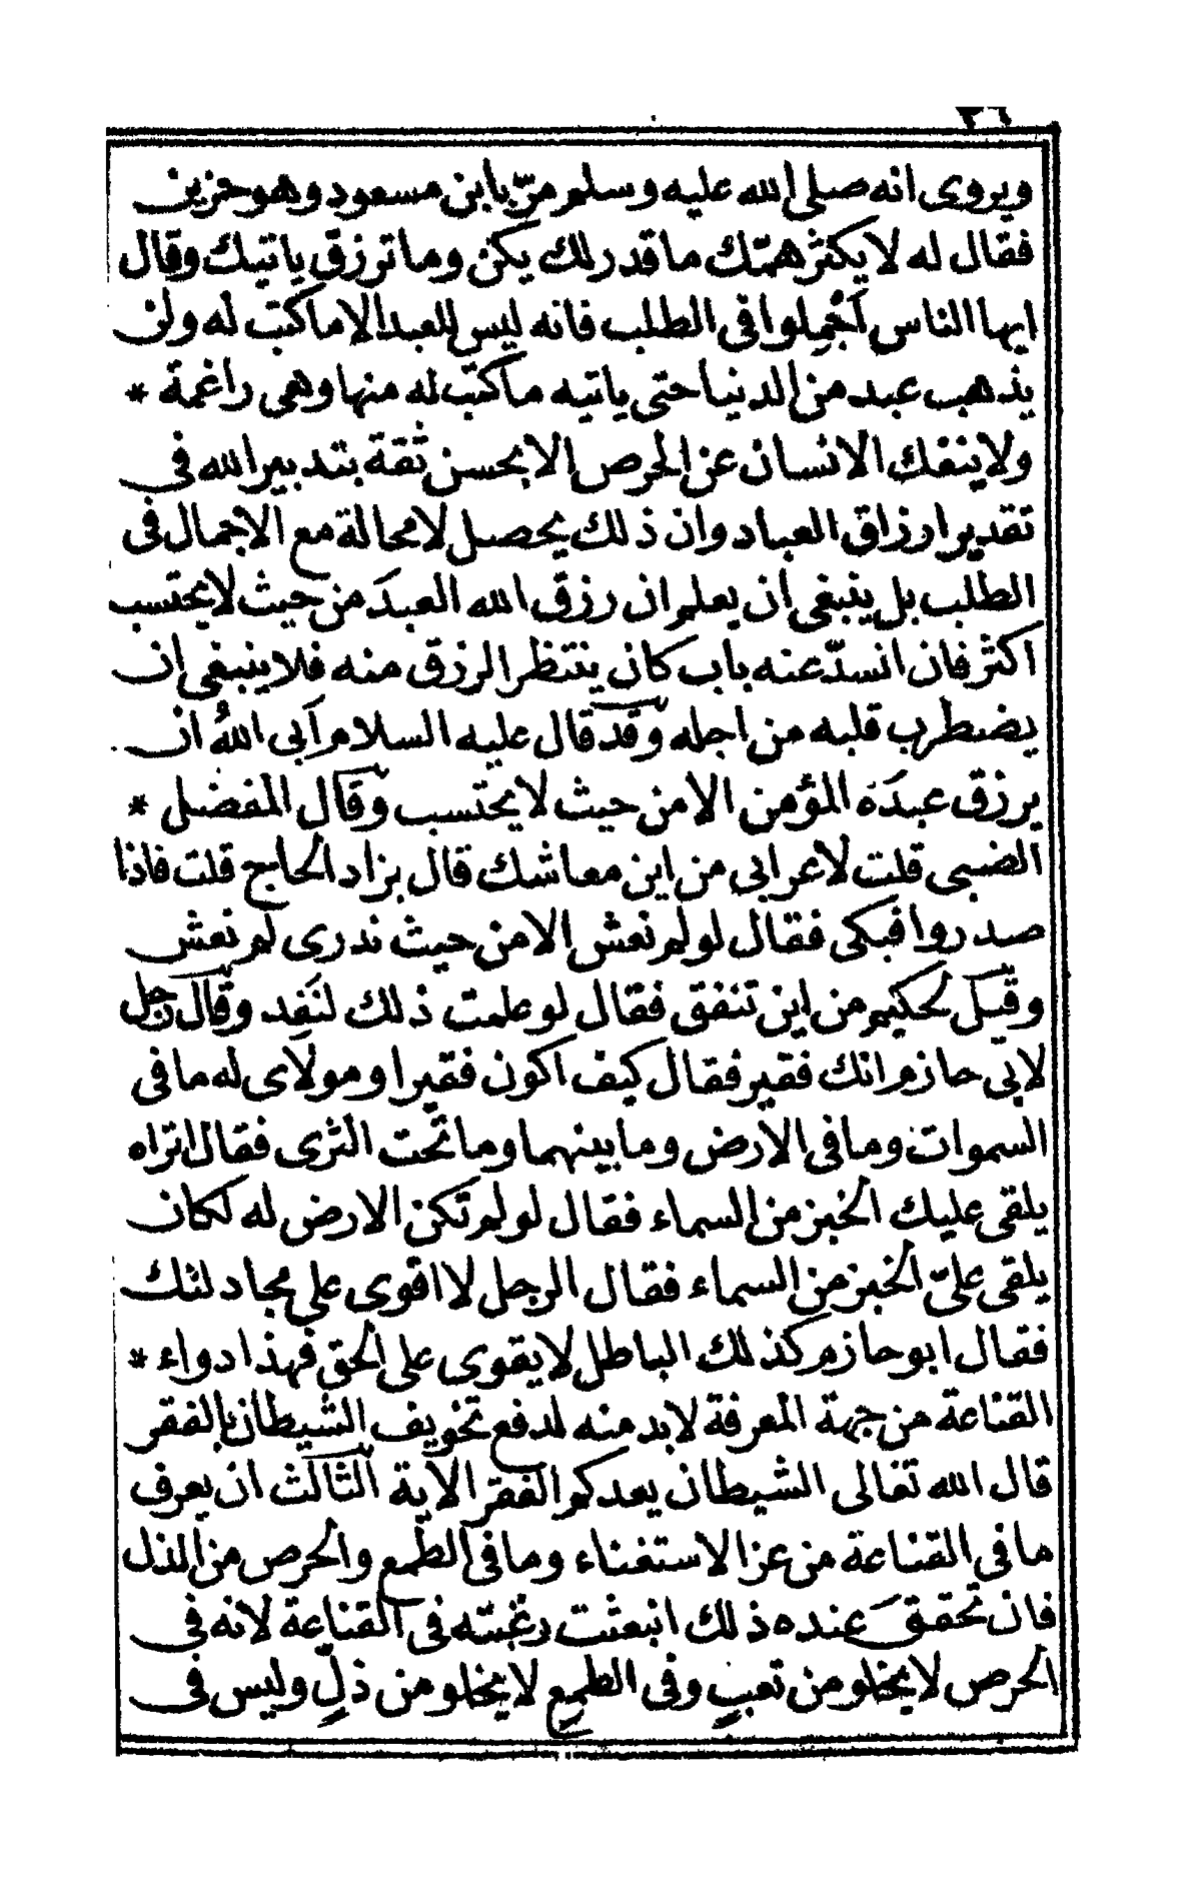 ٣٦
ويروى انه صلى الله عليه وسلم مرّ بابن مسعود وهو حزين
فقال له لا يكثر همّك ما قدر لك يكن وما ترزق ياتيك وقال
ايها الناس اَجْمِلوا فى الطلب فانه ليس للعبد الا ما كتب له ولن
يذهب عبد من الدنيا حتى ياتيه ما كتب له منها وهى راغمة *
ولا ينفك الانسان عن الحرص الا بحسن ثقة بتدبير الله فى
تقدير ارزاق العباد وان ذلك يحصل لا محالة مع الاجمال فى
الطلب بل ينبغى ان يعلم ان رزق الله العبدَ من حيث لا يحتسب
اكثر فان انسدّ عنه باب كان ينتظر الرزق منه فلا ينبغى ان
يضطرب قلبه من اجله وقد قال عليه السلام اَبى اللهُ ان
يرزق عبدَه المؤمن الا من حيث لا يحتسب وقال المفضل *
الضبى قلت لاعرابى من اين معاشك قال بزاد الحاج قلت فاذا
صدروا فبكى فقال لو لم نعش الا من حيث ندرى لم نعش
وقيل لحكيم من اين تنفق فقال لو علمت ذلك لنَفِد وقال رجل
لابى حازم انك فقير فقال كيف اكون فقيرا ومولاى له ما فى
السموات وما فى الارض وما بينهما وما تحت الثرى فقال اتراه
يلقى عليك الخبز من السماء فقال لو لم تكن الارض له لكان
يلقى علىّ الخبز من السماء فقال الرجل لا اقوى على مجادلتك
فقال ابو حازم كذلك الباطل لا يقوى على الحق فهذا دواء *
القناعة من جهة المعرفة لا بد منه لدفع تخويف الشيطان بالفقر
قال الله تعالى الشيطان يعدكم الفقر الآية الثالث ان يعرف
ما فى القناعة من عز الاستغناء وما فى الطمع والحرص من الذل
فان تحققَ عنده ذلك انبعثت رغبته فى القناعة لانه فى
الحرص لا يخلو من تعبٍ وفى الطمع لا يخلو من ذلٍّ وليس فى